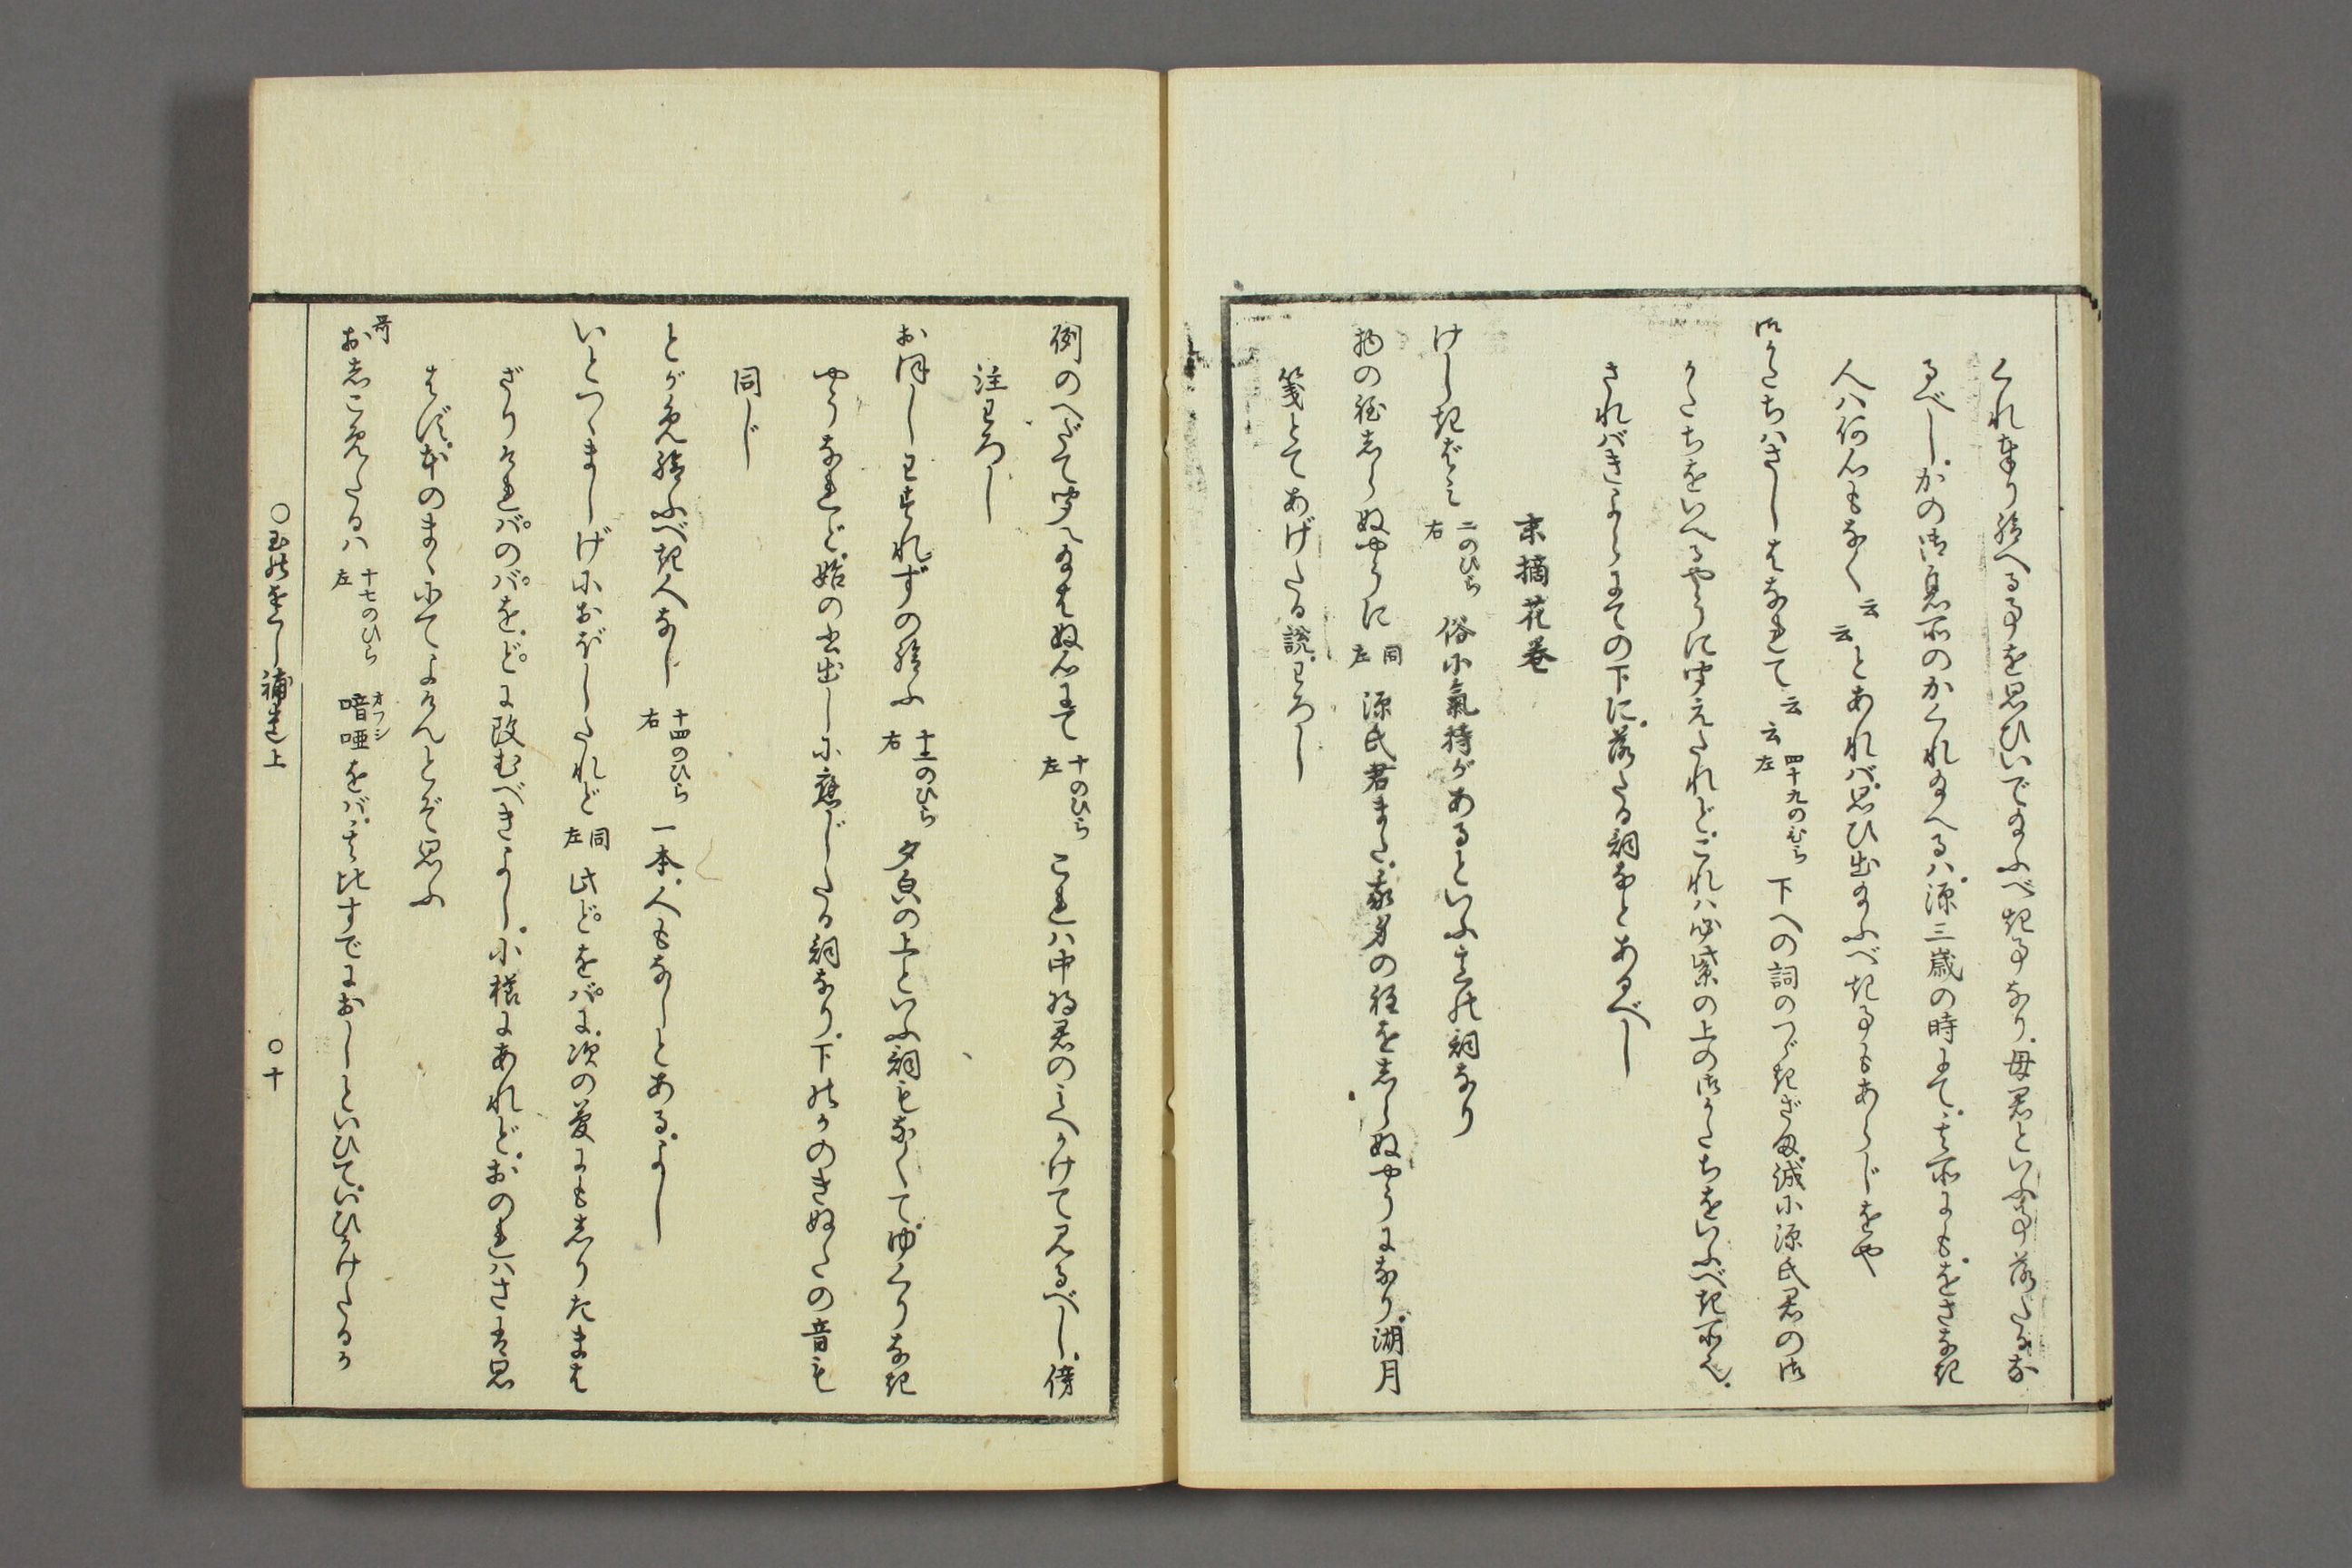 くれ奉り給へる事を思ひいで給ふべき事なり、母君といふ事落たるな
るべし、かの御息所のかくれ給へるハ、源三歳の時にて、其所にも、をさなき
人ハ何心もなく云云とあれバ、思ひ出給ふべき事もあらじをや
御かたちハさしはなれて云云 四十九のひら左 下への詞のつゞきざま、誠に源氏君の御
かたちをいへるやうに聞えたれど、これハ必紫の上の御かたちをいふべき所也、
されバきよらにての下に、落たる詞などあるべし
末摘花巻
けしきばミ 二のひら右 俗に氣持があるといふ意の詞なり
物の程しらぬやうに 同左 源氏君また、我身の程をしらぬやうになり、湖月
箋とてあげたる説、わろし
例のへだて聞え給はぬ心にて 十のひら左 これハ中将君のミへかけて見るべし、傍
注わろし
おぼしわすれずの給ふ 十二のひら右 夕㒵の上といふ詞もなくて、ゆくりなき
やうなれど、始の書出しに應じたる詞なり、下のかのきぬたの音も
同じ
とがめ給ふべき人なし 十四のひら右 一本、人もなしとある、よし
いとつゝましげにおぼしたれど 同左 此どをバに、次の夢にもしりたまは
ざりけれバのバを、どに改むべきよし、小櫛にあれど、おのれハさは思
はず、本のまゝにてよけんとぞ思ふ
哥
おしこめたるハ 十七のひら左 喑唖オフシをバ、其比すでにおしといひて、いひかけたるか
○玉のをぐし補遺上 ○十